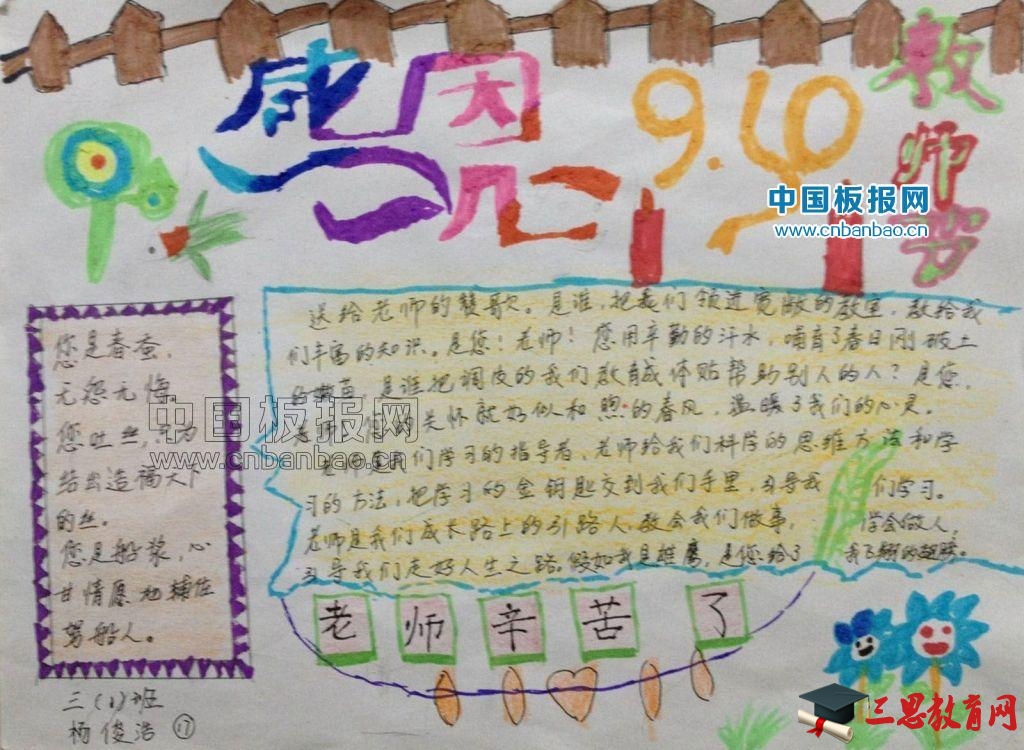 感恩
9.10
教师节
中国板报网
www.cnbanbao.cn
您是春蚕，
无怨无悔。
您吐丝，只为
结出造福天下
的丝。
您是船桨，心
甘情愿地辅佐
驾船人。
中国板报网
www.cnbanbao.cn
送给老师的赞歌。是谁，把我们领进宽敞的教室，教给我
们丰富的知识。是您！老师！您用辛勤的汗水，哺育了春日刚破土
的嫩苗，是谁把调皮的我们教育成体贴帮助别人的人？是您，
老师！您的关怀就好似和煦的春风，温暖了我们的心灵。
老师是我们学习的指导者，老师给我们科学的思维方法和学
习的方法，把学习的金钥匙交到我们手里，引导我们学习。
老师是我们成长路上的引路人，教会我们做事，学会做人，
引导我们走好人生之路。假如我是雄鹰，是您给了我飞翔的翅膀。
老师辛苦了
三（1）班
杨俊浩 17
三思教育网